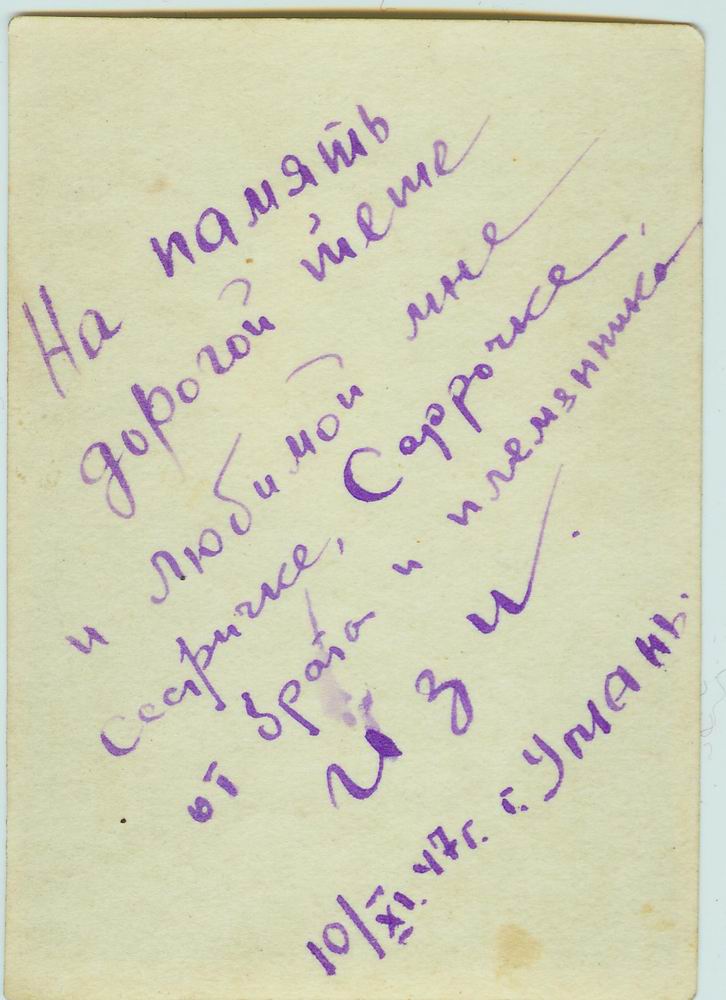 На память
дорогой тете
и любимой мне
сестричке, Саррочке,
от брата и племянника
Изи.
10/XI.47г. г. Умань.